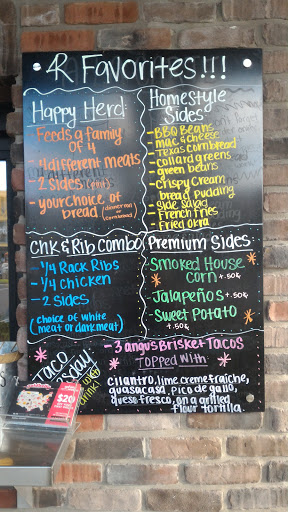 4R Favorites!!!
Happy Herd:
- Feeds a family
of 4
- 4 different meats
- 2 Sides
- your choice of
bread (dinner roll
or cornbread)
Homestyle
Sides
- BBQ Beans
- mac & cheese
- Texas Cornbread
- collard greens
- green beans
- Crispy Cream
bread pudding
- side salad
- French Fries
- Fried Okra
Chk & Rib Combo
- 1/4 Rack Ribs
- 1/4 Chicken
- 2 Sides
(choice of white
meat or dark meat)
Premium Sides:
Smoked House
Corn +.50¢
Jalapeños +.50¢
Sweet Potato
+.50¢
Taco
- 3 angus Brisket Tacos
Topped with
cilantro, lime creme fraiche,
guasacasa, pico de gallo,
queso fresco, on a grilled
flour tortilla.
$20